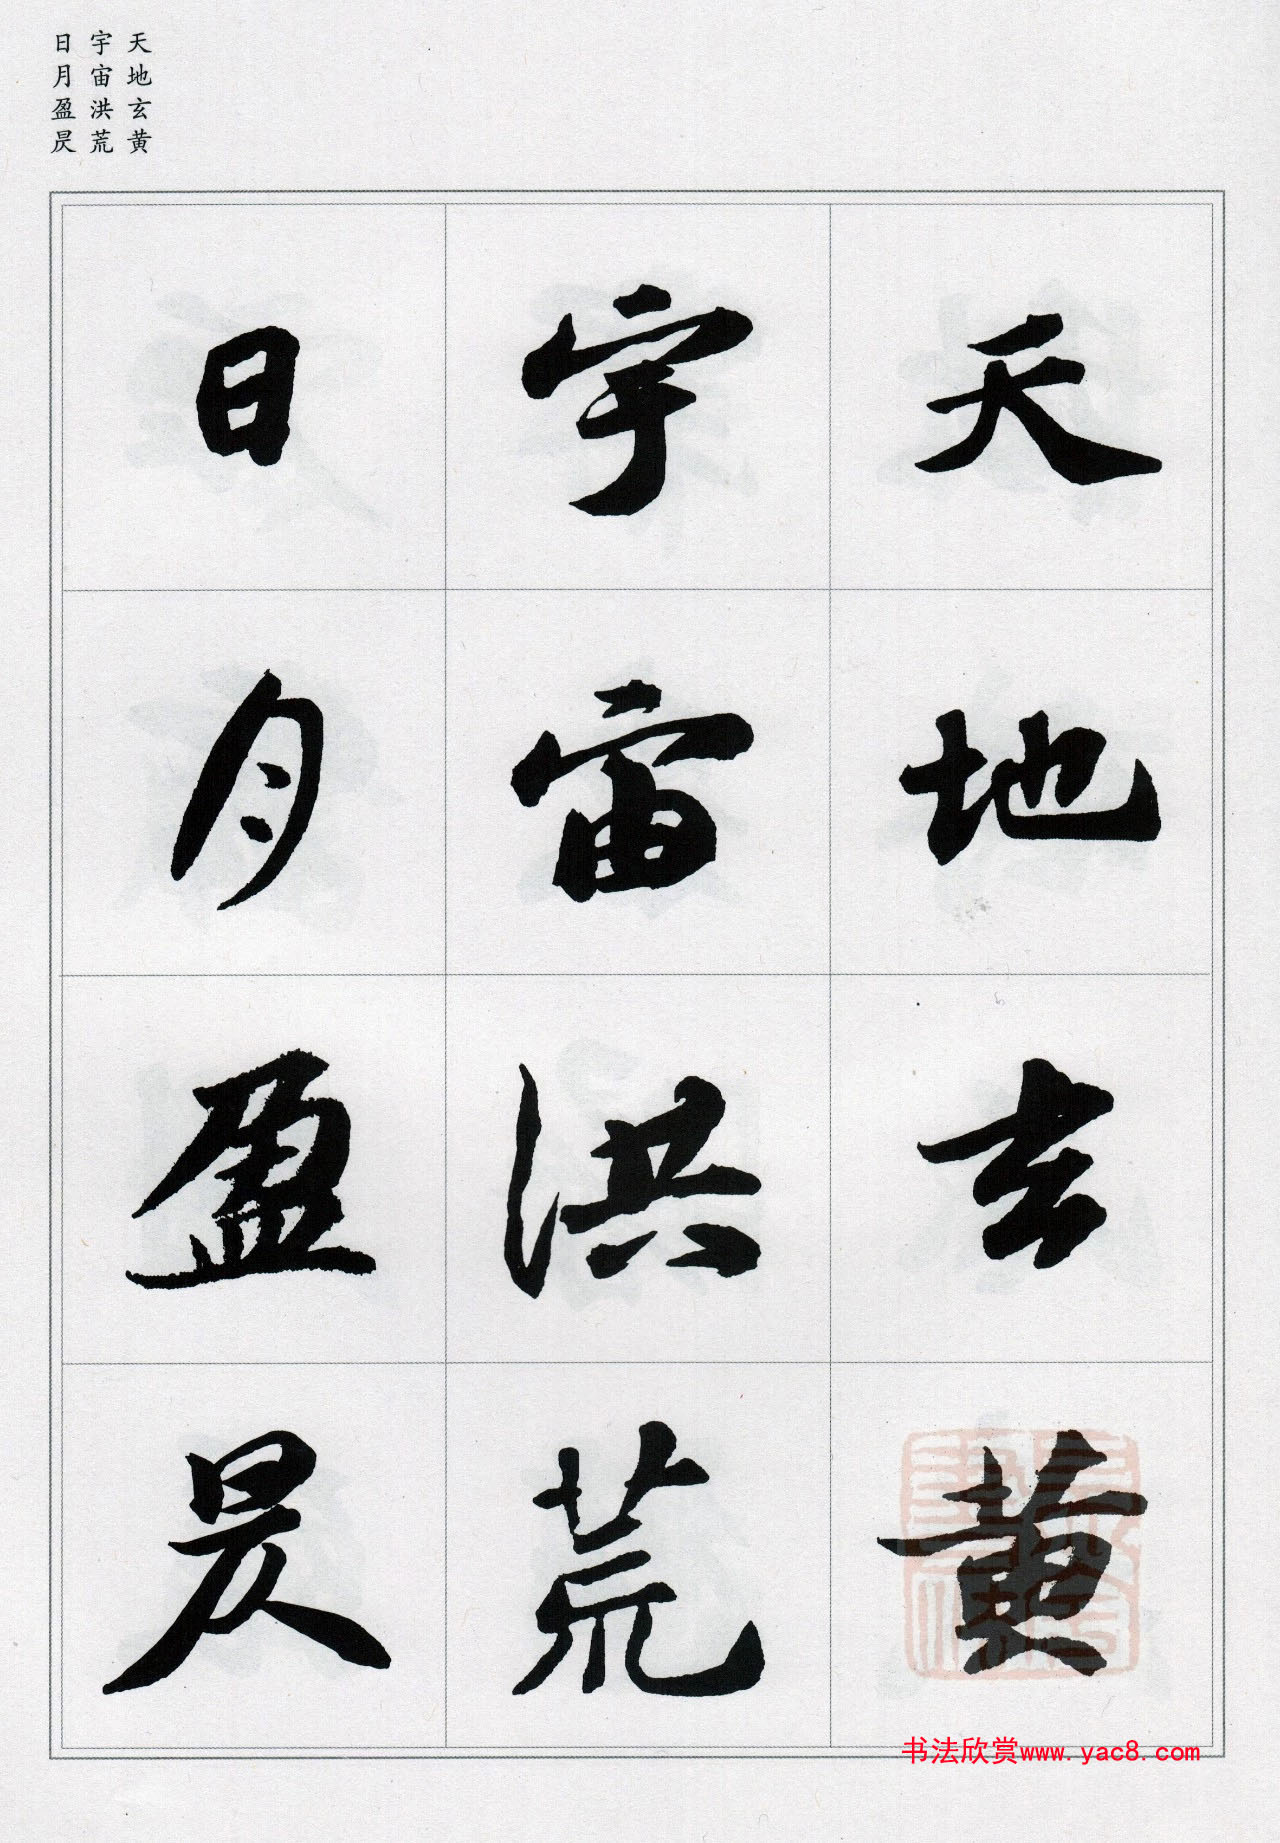 天地玄黄
宇宙洪荒
日月盈昃
天地玄黄
宇宙洪荒
日月盈昃
书法欣赏www.yac8.com